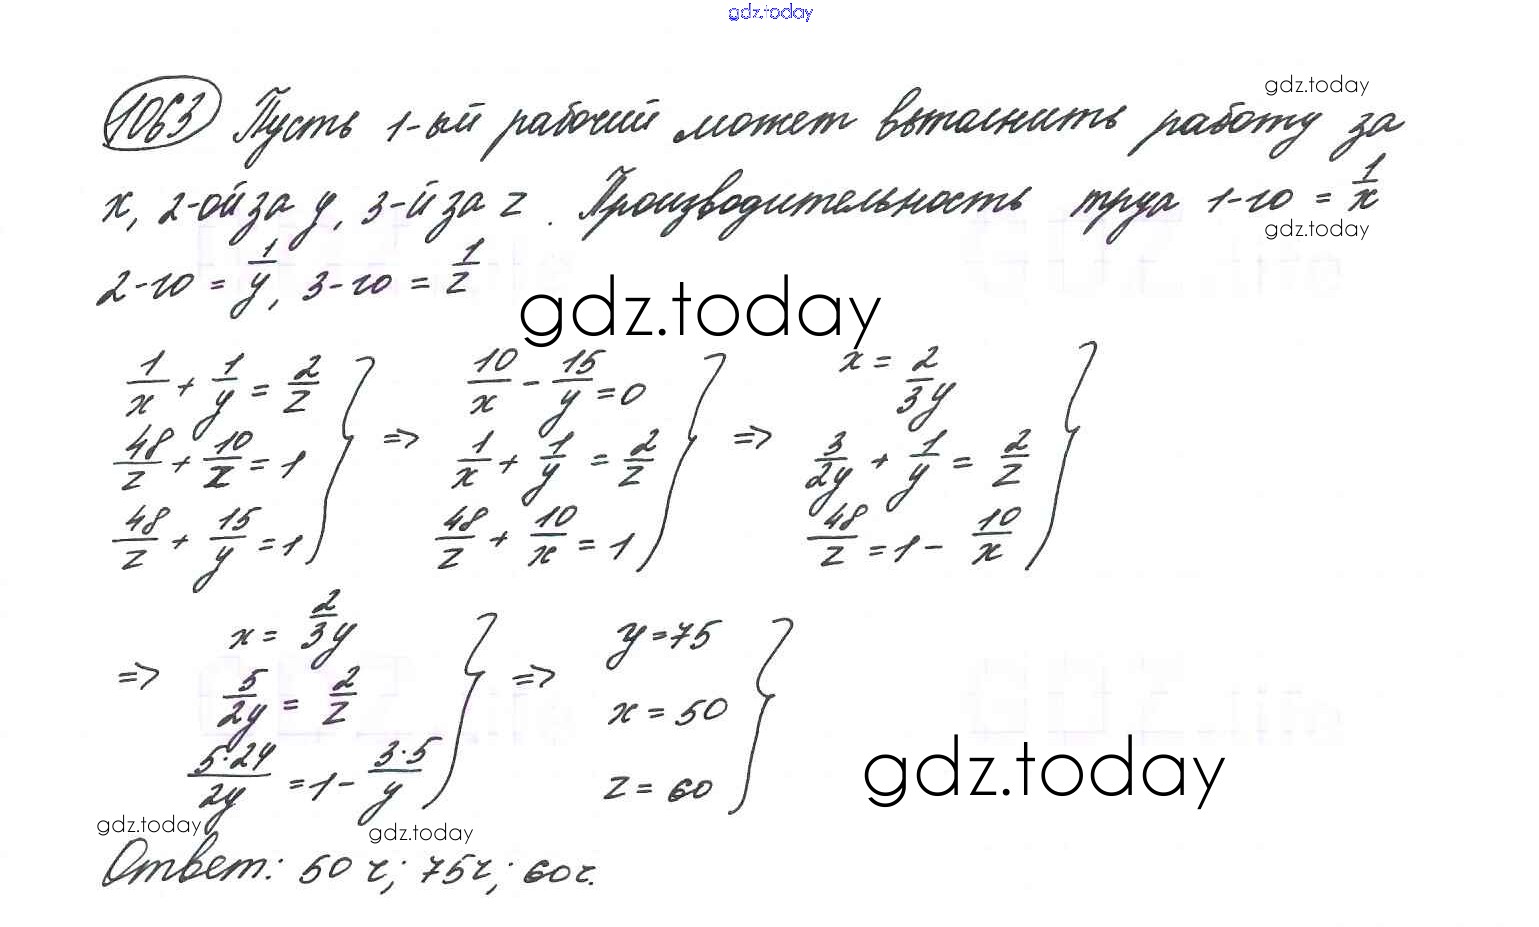 gdz.today
gdz.today
1063 Пусть 1-ый рабочий может выполнить работу за
x, 2-ой за y, 3-й за z. Производительность труа 1-го = 1/x
gdz.today
2-го = 1/y, 3-го = 1/z
gdz.today
1/x + 1/y = 2/z } => 10/x - 15/y = 0 } => x = 2/3y }
48/z + 10/z = 1 1/x + 1/y = 2/z 3/2y + 1/y = 2/z
48/z + 15/y = 1 48/z + 10/x = 1 48/z = 1 - 10/x
=> x = 2/3y } => y = 75 }
5/2y = 2/z x = 50
5·24/2y = 1 - 3·5/y z = 60
gdz.today
gdz.today gdz.today
Ответ: 50 ч; 75ч; 60ч.